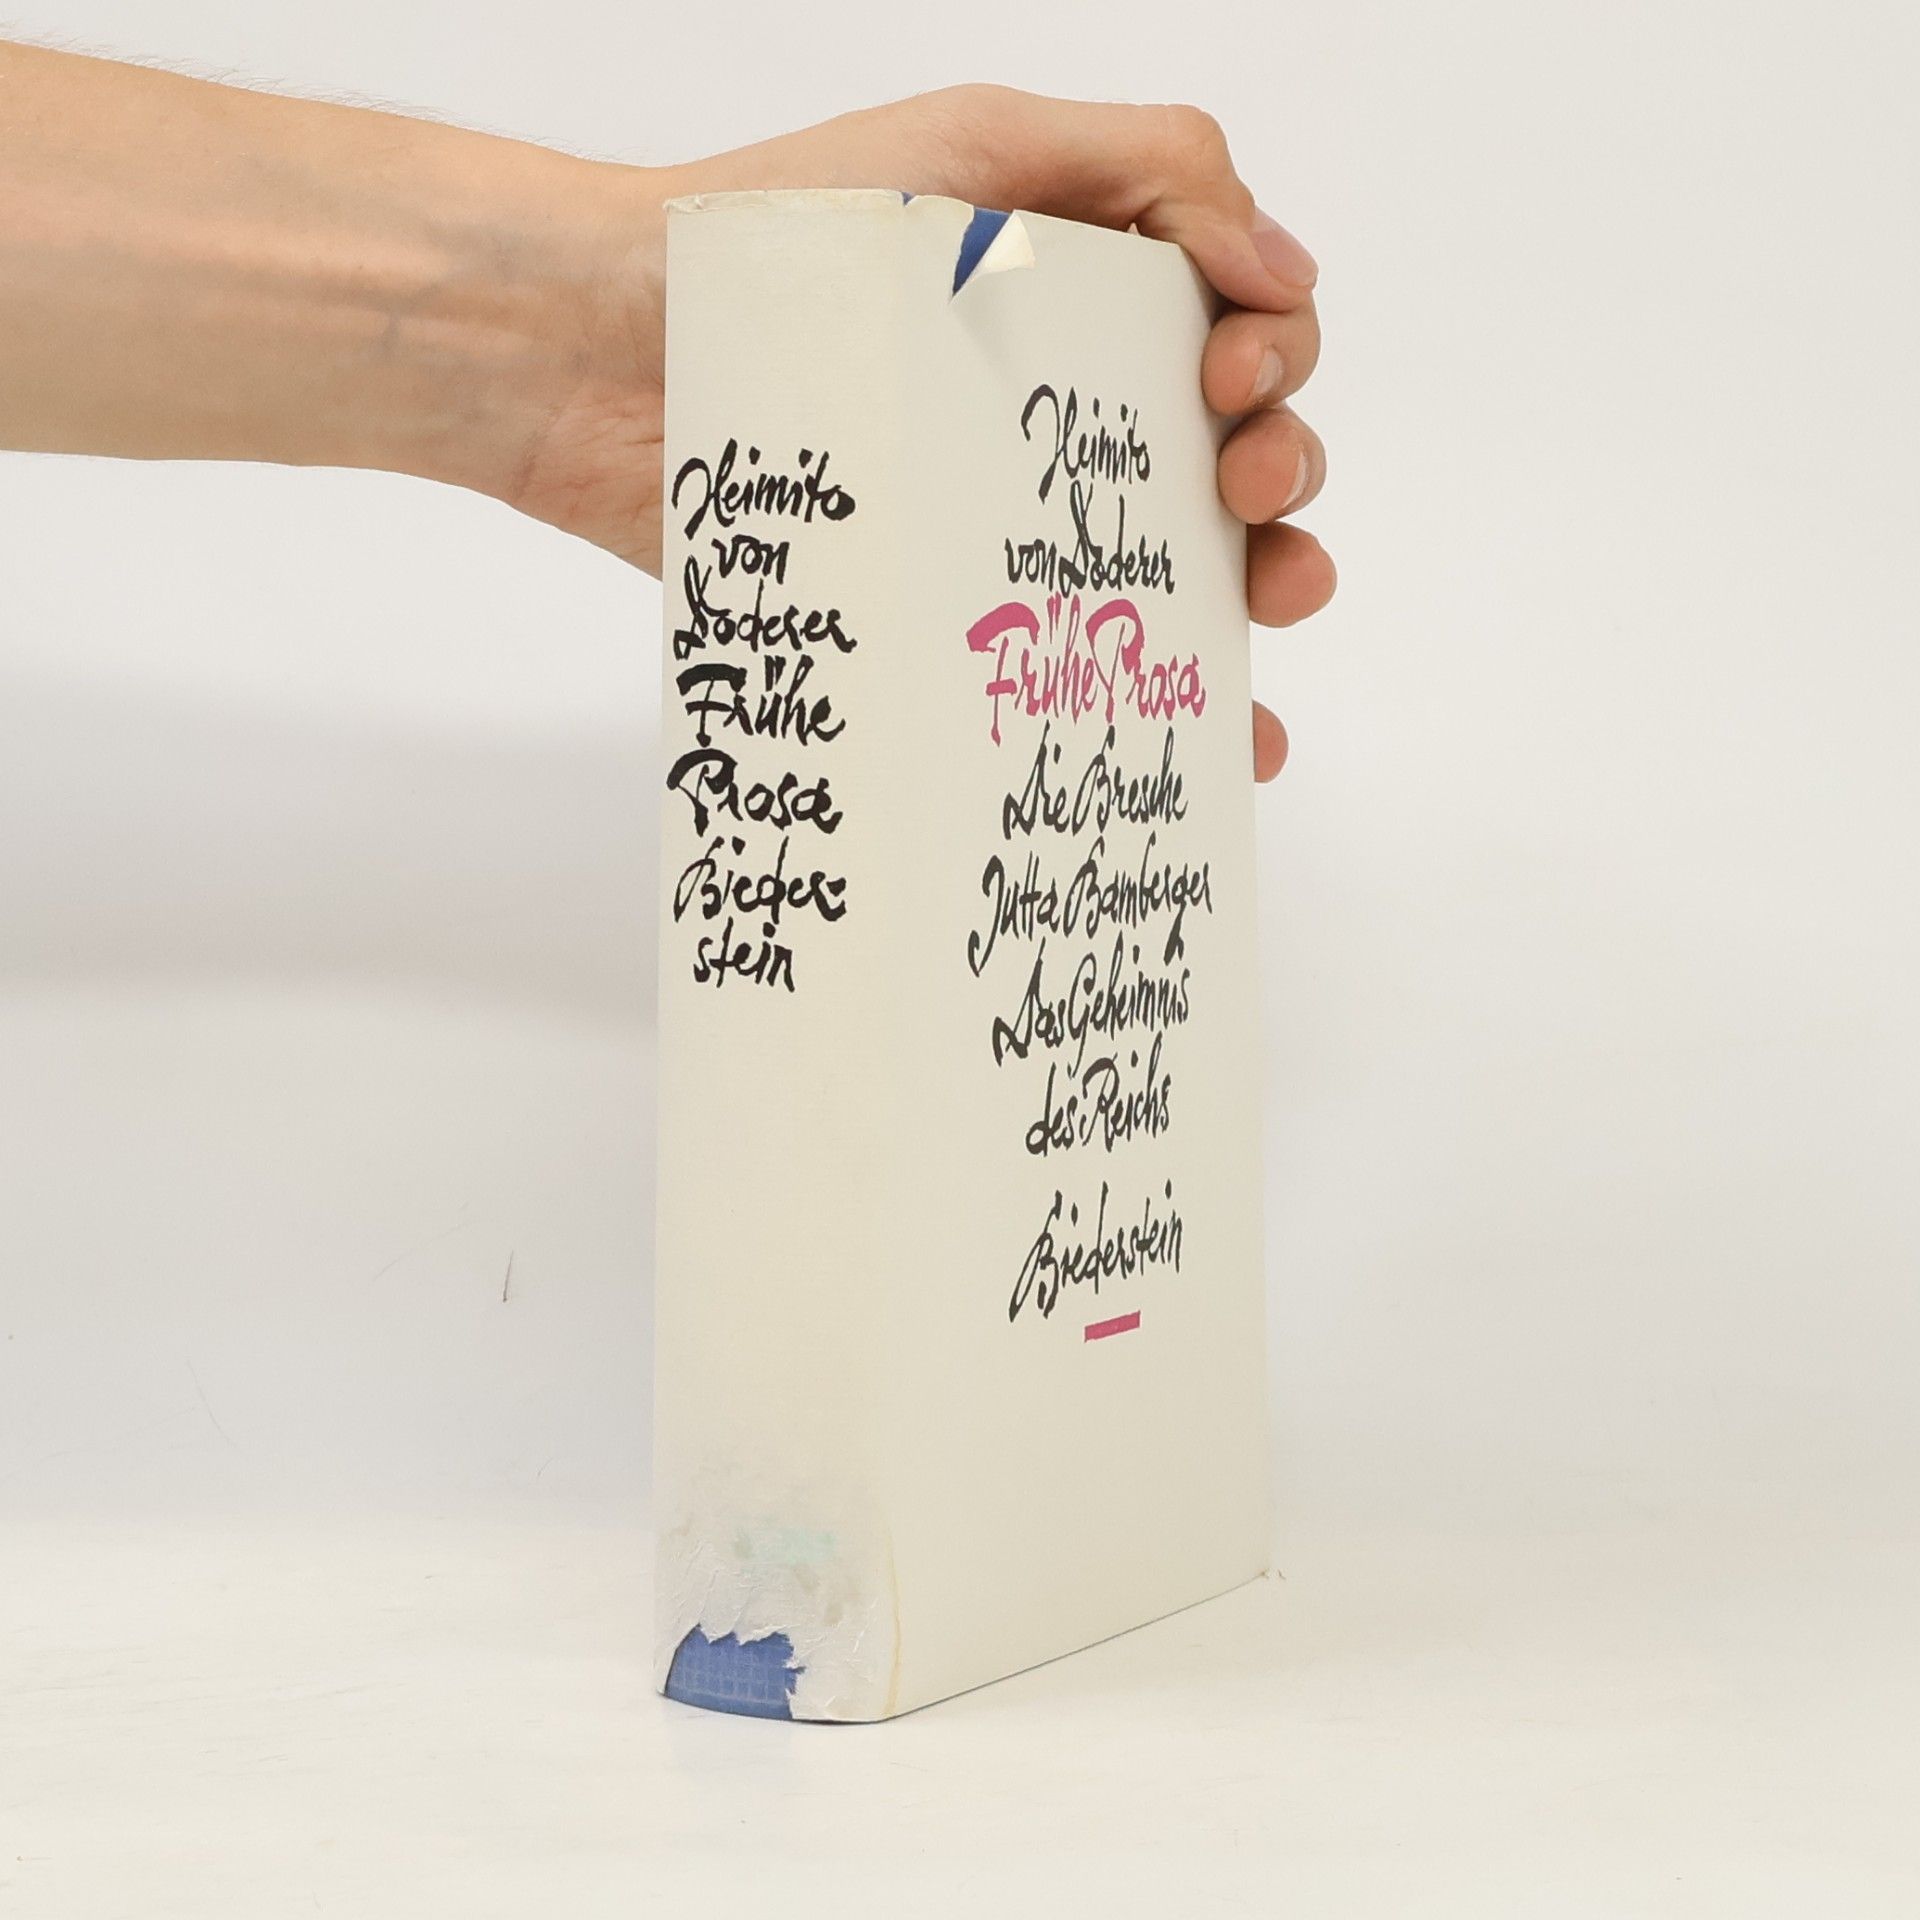 Heimito
von
Doderer
Frühe
Prosa
Bieder-
stein
Heimito
von Doderer
Frühe Prosa
Die Bresche
Jutta Bamberger
Das Geheimnis
des Reichs
Biederstein